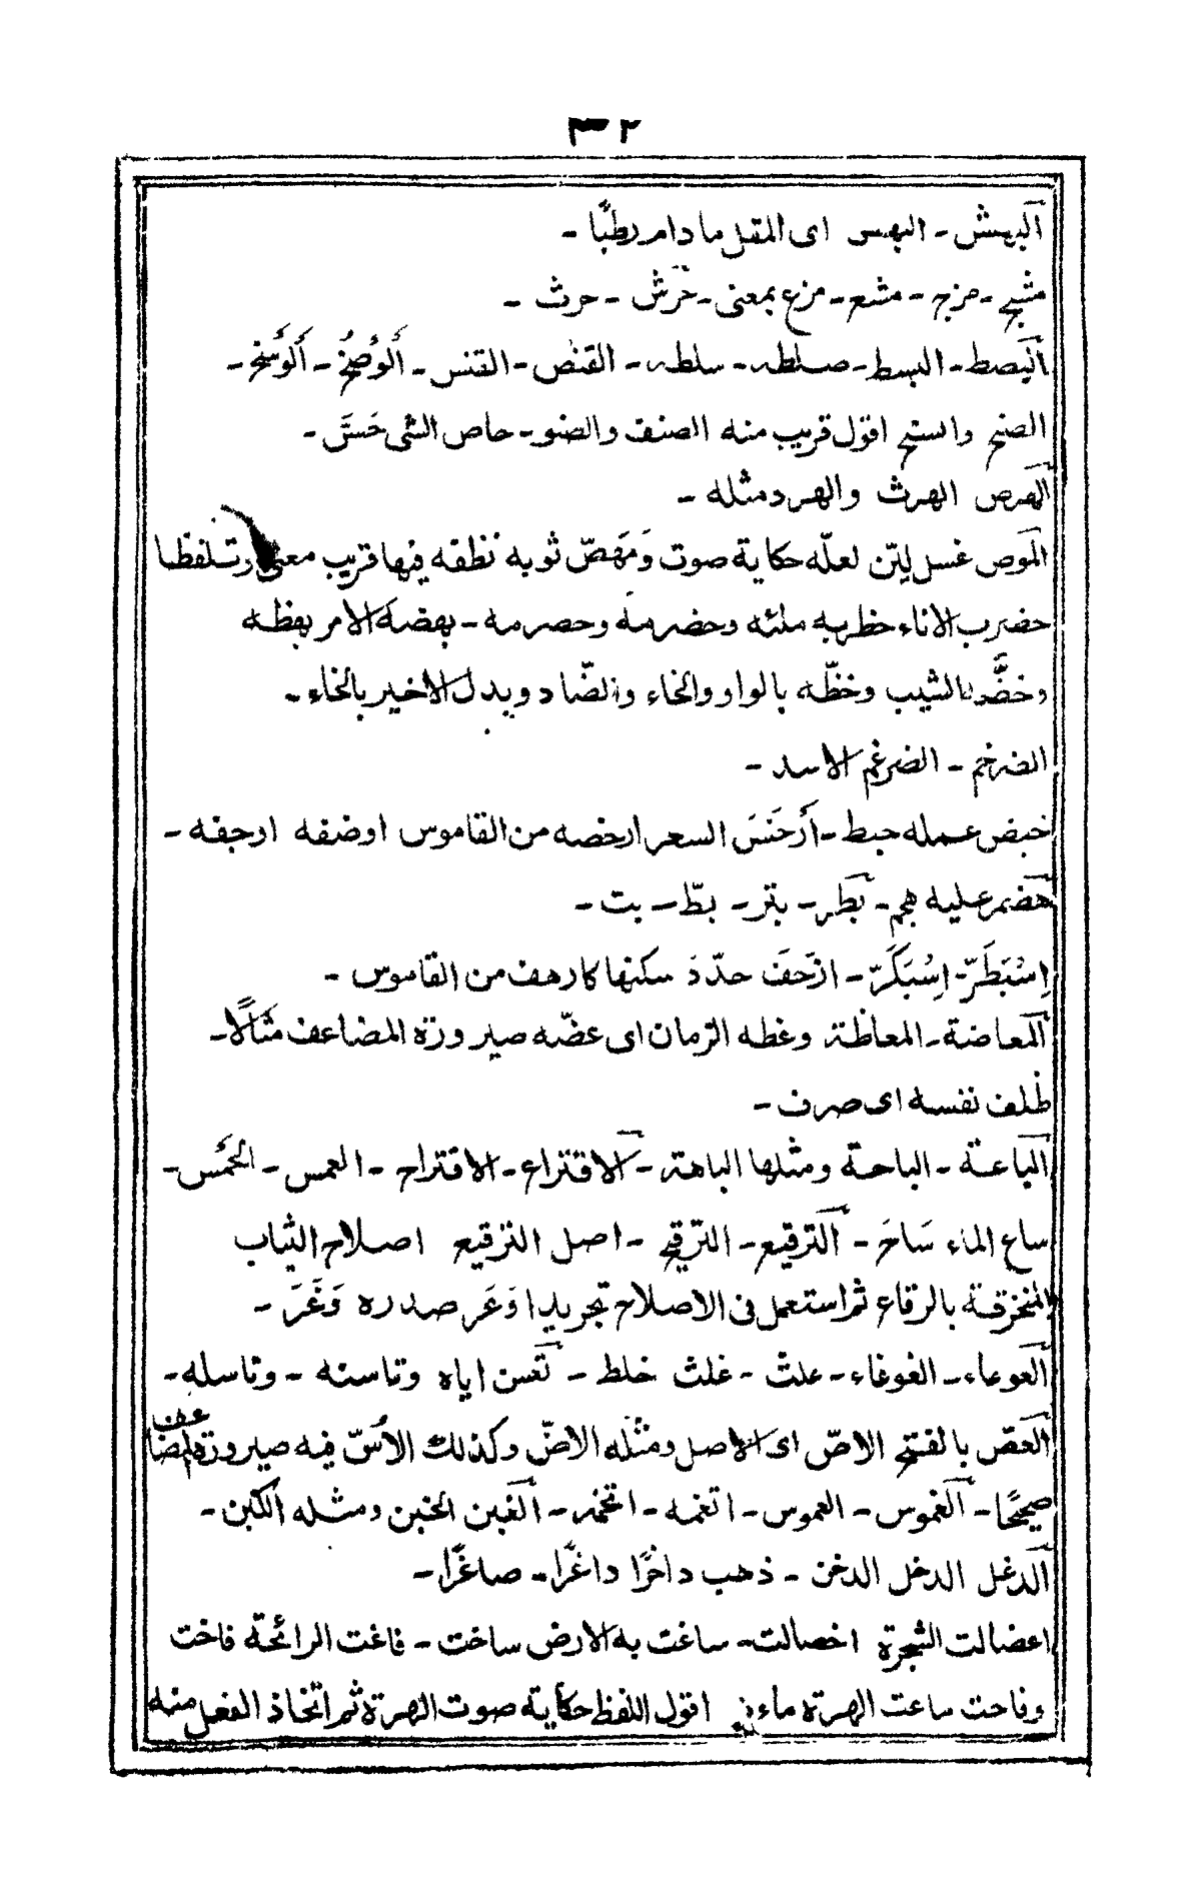 ٣٢
البهش - البهس اى المقل مادام رطبًا -
مشج - مزج - مشع - مزع بمعنى - خَرَش - حرث -
اليَصط - البسط - صلطه - سلطه - القنص - القنس - اَلوُصْخُ - اَلوُسَخ -
الصنح والسنح اقول قريب منه الصنف والضو - حاص الشى خَسَّنَ -
الهرص الهرث والهرد مثله -
الموص غسل ليّن لعلّه حكاية صوت وَمَهَصّ ثوبه نظفه فيها قريب معنى وتلفظا
حضرب الاناء حظربه ملئه وحضرمه وحصرمه - بهضه الامر بهظه
وخضّه الشيب وخظّه بالواو والخاء والضّاد ويدل الاخير بالخاء -
الضرخم - الضرغم الاسد -
خبض عمله حبط - اَرخَسَ السعر ارخصه من القاموس اوضفه ارجفه -
هضم عليه هجم - بَطَر - بتر - بطّ - بت -
اِسْبَطَرّ - اِسْبَكَرّ - ازحَفَ حدّدَ سكنها كارهف من القاموس -
المعاضة - المعاظة وغطه الزمان اى عضّه صيرورة المضاعف مثَالًا -
ظلف نفسه اى صرف -
الباعة - الباحة ومثلها الباهة - الاقتراع - الاقتراح - العمس - الحَمَس -
ساع الماء سَاحَ - الترقيع - الترقيح - اصل الترقيع اصلاح الثياب
المنخرقة بالرقاع ثم استعمل فى الاصلاح تجريدا وَعَر صدره وَغَرَ -
العوعاء - الغوغاء - علث - غلث خلط - تَعَسن اياه وتاسنه - وتاسله -
العصّ بالفتح الاصّ اى الاصل ومثله الاضّ وكذلك الاُسّ فيه صيرورة المضاعف
صحيحًا - الغموس - العموس - اتغمه - اتخمه - الغبن الخبن ومثله الكبن -
الدغل الدخل الدخن - ذهب داخرًا داغرًا - صاغرًا -
اعضالت الشجرة اخصالت - ساغت به الارض ساخت - فاغت الرائحة فاخت
وفاحت ماعت الهرة ماءت اقول اللفظ حكاية صوت الهرة ثم اتخاذ الفعل منه